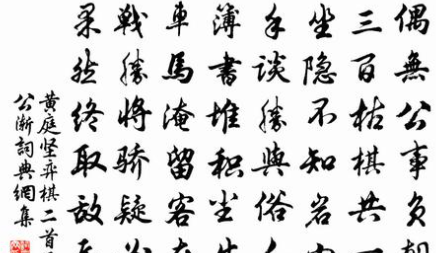 偶無公事負朝
三百枯棋共一
坐隐不知岩
手谈勝與俗人
簿書堆积尘生
車馬淹留客在
戰勝将骄疑必
果然终取敌
黄庭坚弈棋二首
公渐詞典網集